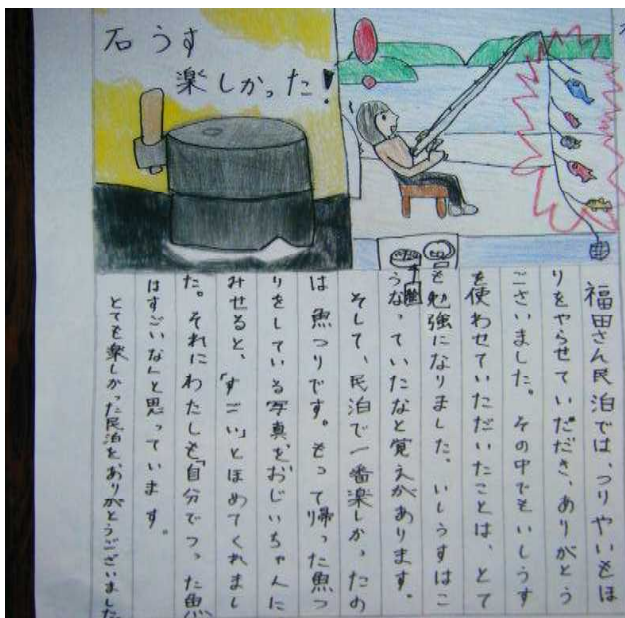 石うす
楽しかった!
福田さん民泊では、つりやいもほ
りをやらせていただき、ありがとう
ございました。その中でもいしうす
を使わせていただいたことは、とて
も勉強になりました。いしうすはこ
うなっていたなと覚えがあります。
そして、民泊で一番楽しかったの
は魚つりです。もって帰った魚つ
りをしている写真をおじいちゃんに
みせると、「すごい」とほめてくれまし
た。それにわたしも「自分でつった魚
はすごいな」と思っています。
とても楽しかった民泊をありがとうございました